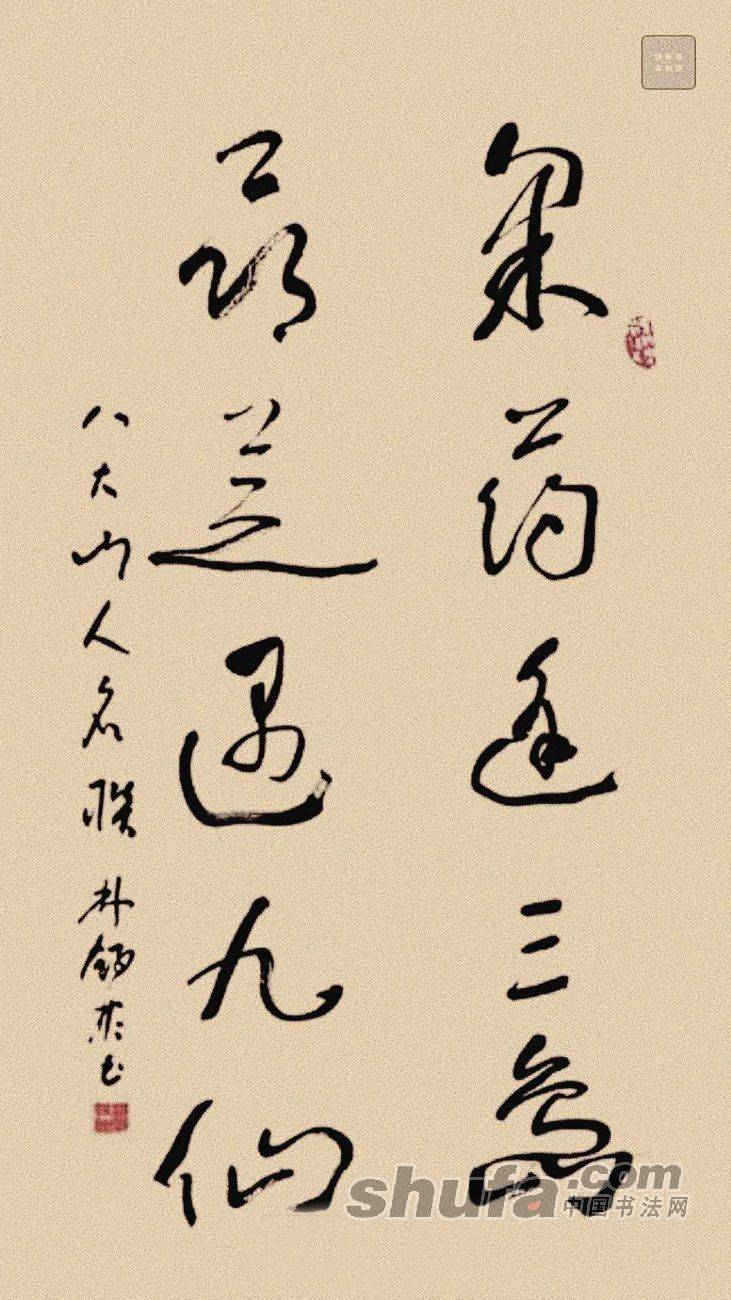 采药逢三島
尋芝遇九仙
八大山人名联 朴锡 书
shufa.com
中国书法网